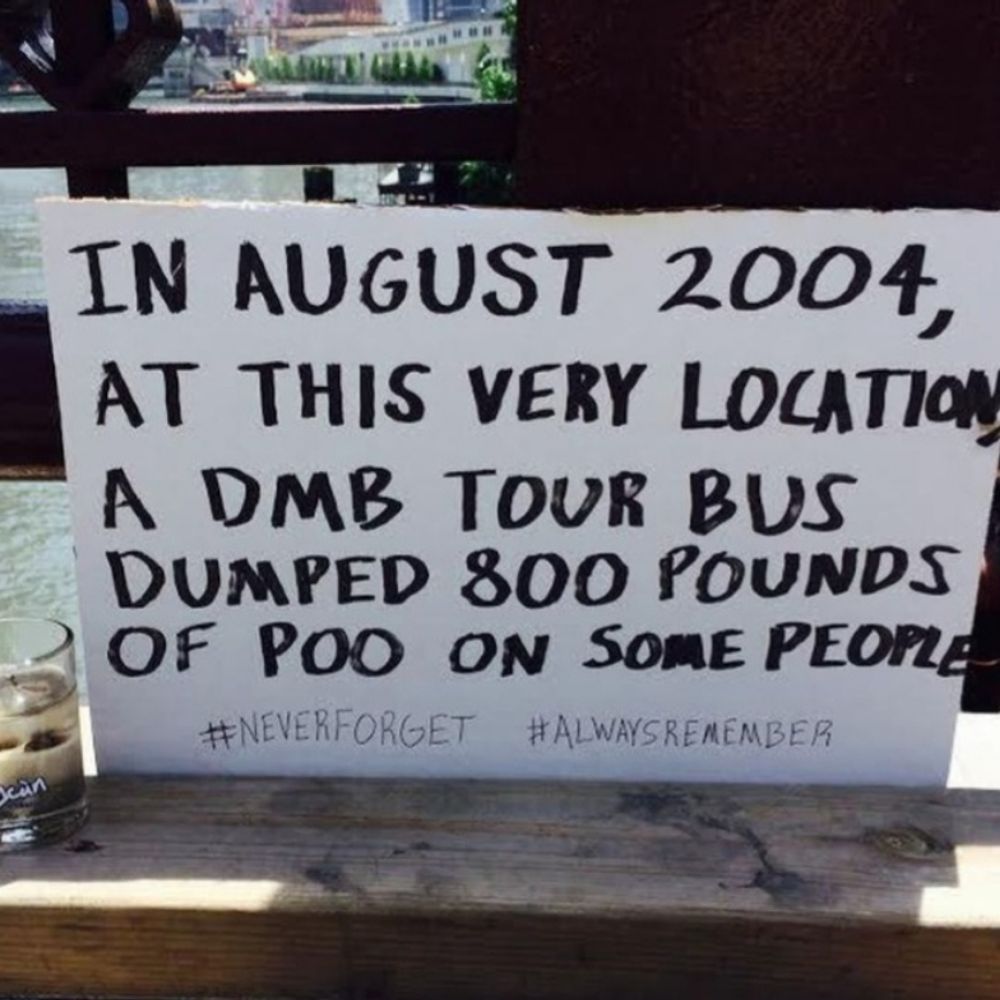 IN AUGUST 2004,
AT THIS VERY LOCATION,
A DMB TOUR BUS
DUMPED 800 POUNDS
OF POO ON SOME PEOPLE
#NEVERFORGET #ALWAYSREMEMBER